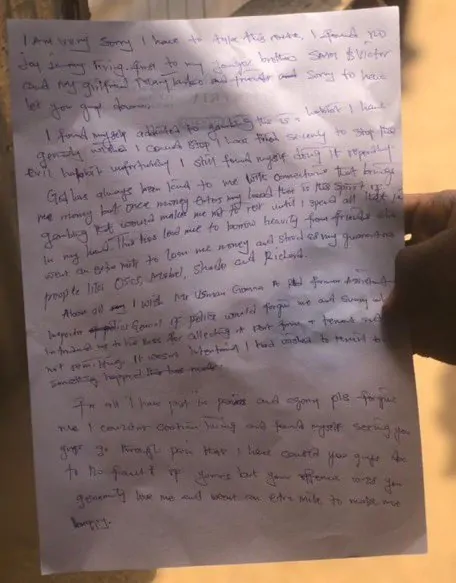 I Am very Sorry I have to take this route, I found no
joy in living. first to my younger brothers Sam & Victor
and my girlfriend families and friends and Sorry to have
let you guys down.
I found myself addicted to gambling this is a habit I have
genuinely wished I could stop I have tried severally to stop this
Evil habit unfortunately I still found myself doing it repeatedly.
God has always been kind to me with connections that brings
me money but once money enters my hand there is this spirit of
gambling that would makes me not to rest until I spend all
in my hand. This has lead me to borrow heavily from friends who
went an extra mile to loan me money and stood as my guarantors
people like and Richard.
Above all I wish Mr Usman a former Assistant
Inspector General of police would forgive me and
to his Boss for collecting a rent from a tenant and
not remitting. It wasn't intentional I had wished to remit but
something happened
In all I have just be pains and agony pls forgive
me I couldn't continue living and found myself seeing you
guys go through pain that I have caused you guys due
to no fault of yours but your offence was you
genuinely love me and went an extra mile to make me
happy.